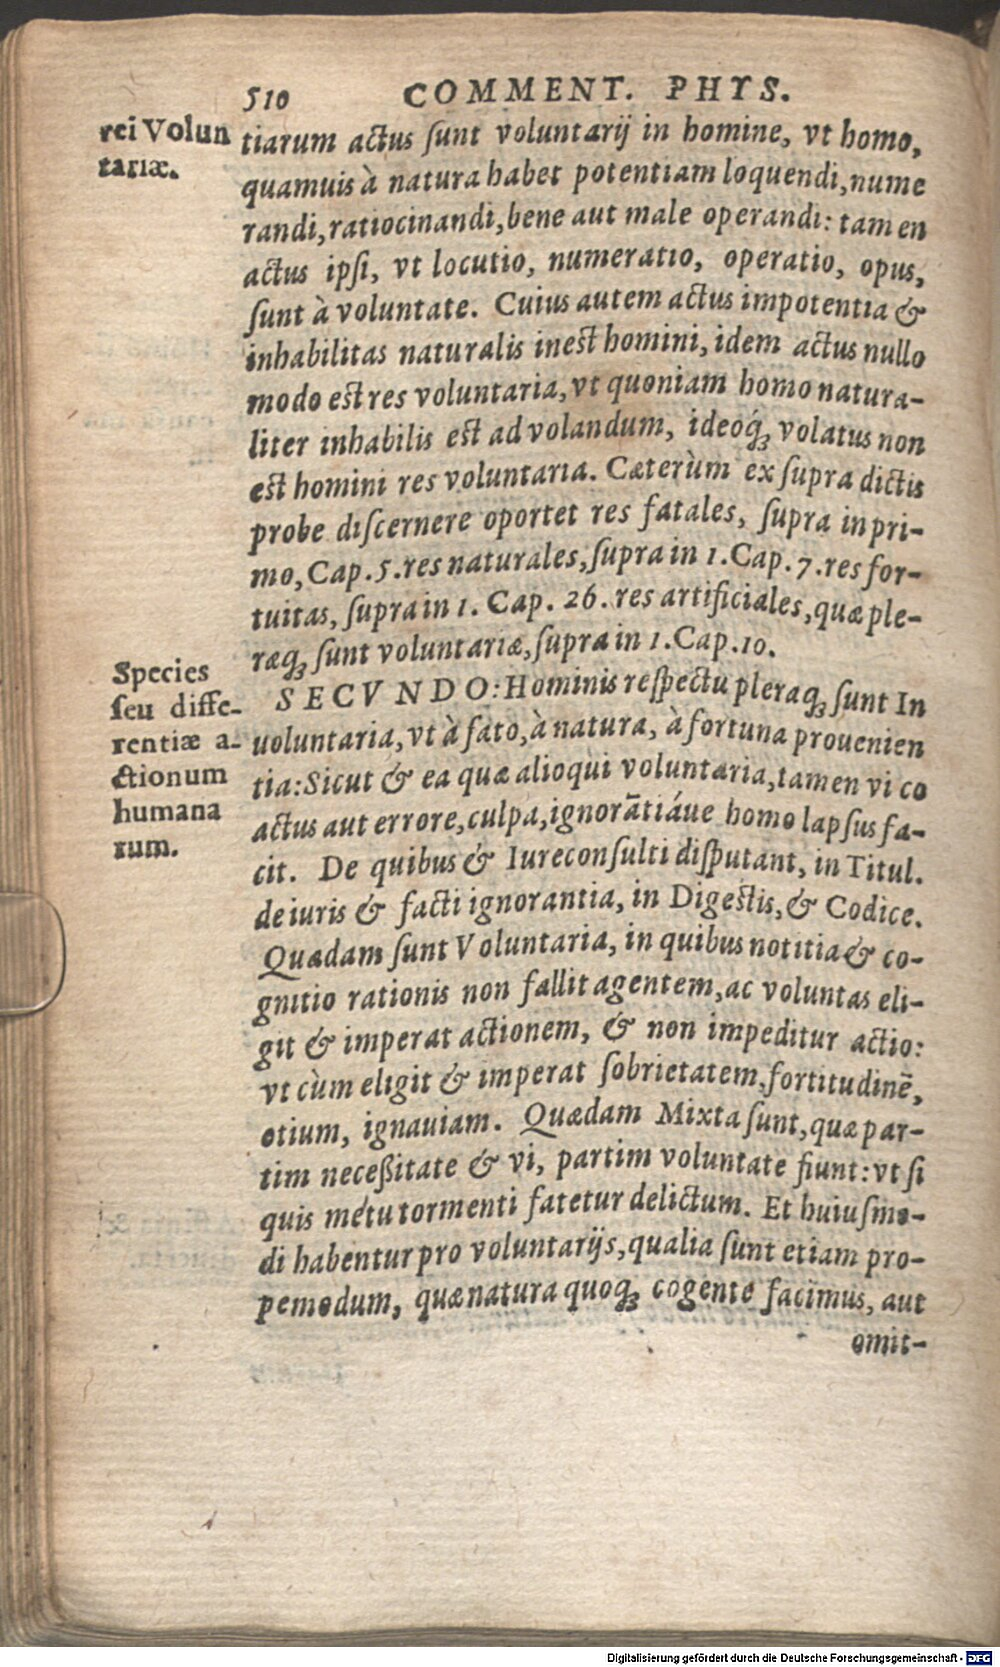 510 COMMENT. PHYS.
rei Volun
tariæ.
tiarum actus ſunt voluntarij in homine, vt homo,
quamuis à natura habet potentiam loquendi, nume
randi, ratiocinandi, bene aut male operandi: tamen
actus ipſi, vt locutio, numeratio, operatio, opus,
ſunt à voluntate. Cuius autem actus impotentia &
inhabilitas naturalis inest homini, idem actus nullo
modo est res voluntaria, vt quoniam homo natura-
liter inhabilis est ad volandum, ideoq́ꝫ volatus non
est homini res voluntaria. Cæterùm ex ſupra dictis
probe diſcernere oportet res fatales, ſupra in pri-
mo, Cap. 5. res naturales, ſupra in 1. Cap. 7. res for-
tuitas, ſupra in 1. Cap. 26. res artificiales, quæ ple-
ræqꝫ ſunt voluntariæ, ſupra in 1. Cap. 10.
Species
ſeu diffe-
rentiæ a-
ctionum
humana
rum.
SECVNDO: Hominis reſpectu pleraqꝫ ſunt In
uoluntaria, vt à fato, à natura, à fortuna prouenien
tia: Sicut & ea quæ alioqui voluntaria, tamen vi co
actus aut errore, culpa, ignorātiáue homo lapſus fa-
cit. De quibus & Iureconſulti diſputant, in Titul.
de iuris & facti ignorantia, in Digestis, & Codice.
Quædam ſunt Voluntaria, in quibus notitia & co-
gnitio rationis non fallit agentem, ac voluntas eli-
git & imperat actionem, & non impeditur actio:
vt cùm eligit & imperat ſobrietatem, fortitudinē,
otium, ignauiam. Quædam Mixta ſunt, quæ par-
tim neceßitate & vi, partim voluntate fiunt: vt ſi
quis metu tormenti fatetur delictum. Et huiuſmo-
di habentur pro voluntarijs, qualia ſunt etiam pro-
pemodum, quæ natura quoqꝫ cogente facimus, aut
omit-
Digitalisierung gefördert durch die Deutsche Forschungsgemeinschaft - DFG